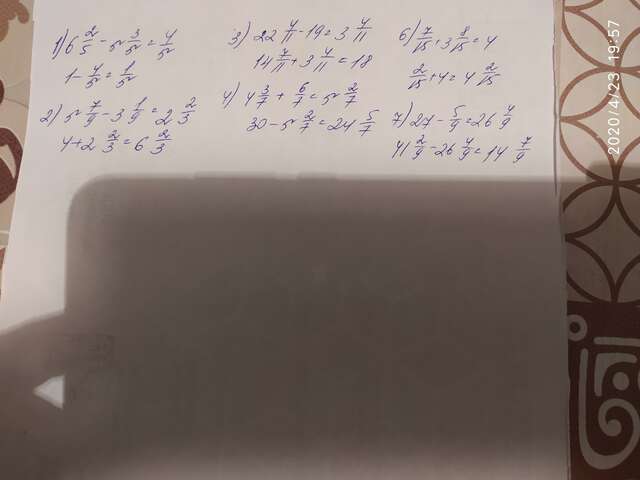 1) 6 2/5 - 5 3/5 = 4/5
1 - 4/5 = 1/5
2) 5 7/9 - 3 1/9 = 2 2/3
4 + 2 2/3 = 6 2/3
3) 22 4/11 - 19 = 3 4/11
14 7/11 + 3 4/11 = 18
4) 4 3/7 + 6/7 = 5 2/7
30 - 5 2/7 = 24 5/7
6) 7/15 + 3 8/15 = 4
2/15 + 4 = 4 2/15
7) 27 - 5/9 = 26 4/9
41 2/9 - 26 4/9 = 14 7/9
2020/4/23 19:57